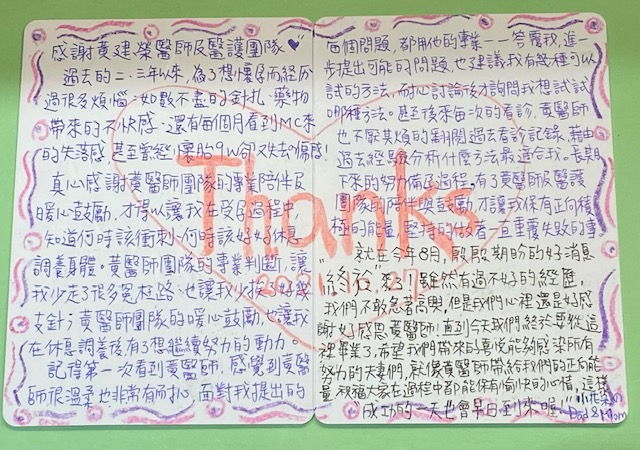 感謝黃建榮醫師及醫護團隊
過去的二、三年以來,為了想懷孕而經歷
過很多煩惱:如數不盡的針扎、藥物
帶來的不快感、還有每個月看到MC來
的失落感,甚至曾經懷胎9W卻又失去的傷感!
真心感謝黃醫師團隊的專業陪伴及
暖心鼓勵,才得以讓我在受孕過程中,
知道何時該衝刺、何時該好好休息、
調養身體。黃醫師團隊的專業判斷,讓
我少走了很多冤枉路、也讓我少挨了好幾
支針;黃醫師團隊的暖心鼓勵,也讓我
在休息調養後,有了想繼續努力的動力。
記得第一次看到黃醫師,感覺到黃醫
師很溫柔也非常有耐心,面對我提出的
每個問題,都用他的專業一一答覆我,進一
步提出可能的問題,也建議我有幾種可以
試的方法,耐心討論後才詢問我想試試
哪種方法。甚至後來每次的看診,黃醫師
也不厭其煩的翻閱過去看診記錄,藉由
過去經驗分析什麼方法最適合我。長期
下來的努力備孕過程,有了黃醫師及醫護
團隊的陪伴與鼓勵,才讓我保有正向積
極的能量,堅持的做著一直重覆失敗的事
就在今年8月,殷殷期盼的好消息
"終於"來了!雖然有過不好的經歷,
我們不敢急著高興,但是我們心裡還是好感
謝、好感恩黃醫師!直到今天我們終於要從這
裡畢業了,希望我們帶來的喜悅能夠感染所有
努力的夫妻們,就像黃醫師帶給我們的正向能
量,祝福大家在過程中都能保有愉快的心情,這樣
"成功的一天也會早日到來喔!"
Dad & Mom
Thanks